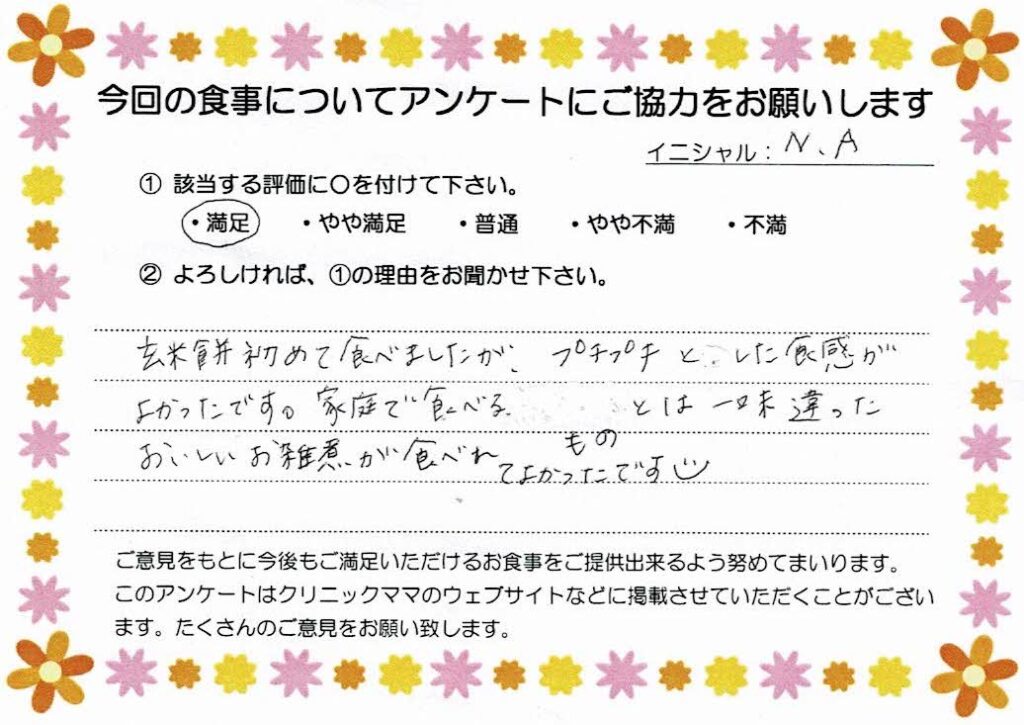 今回の食事についてアンケートにご協力をお願いします
イニシャル： N、A
① 該当する評価に〇を付けて下さい。
・満足 ・やや満足 ・普通 ・やや不満 ・不満
② よろしければ、①の理由をお聞かせ下さい。
玄米餅初めて食べましたが、プチプチとした食感が
よかったです。家庭で食べる とは一味違った
もの
おいしいお雑煮が食べれてよかったです
ご意見をもとに今後もご満足いただけるお食事をご提供出来るよう努めてまいります。
このアンケートはクリニックママのウェブサイトなどに掲載させていただくことがござい
ます。たくさんのご意見をお願い致します。